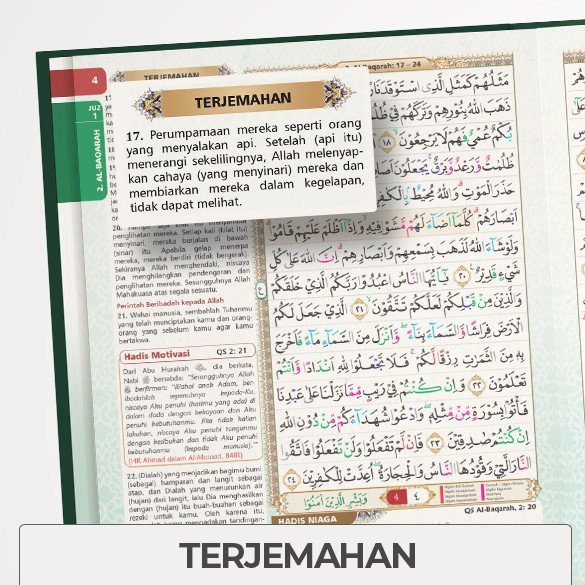 4
TERJEMAHAN
2. Al-Baqarah: 17 – 24
JUZ
1
2. AL-BAQARAH
TERJEMAHAN
17. Perumpamaan mereka seperti orang
yang menyalakan api. Setelah (api itu)
menerangi sekelilingnya, Allah melenyap-
kan cahaya (yang menyinari) mereka dan
membiarkan mereka dalam kegelapan,
tidak dapat melihat.
penglihatan mereka. Setiap kali (kilat itu)
menyinari, mereka berjalan di bawah
(sinar) itu. Apabila gelap menerpa
mereka, mereka berdiri (tidak bergerak).
Sekiranya Allah menghendaki, niscaya
Dia menghilangkan pendengaran dan
penglihatan mereka. Sesungguhnya Allah
Mahakuasa atas segala sesuatu.
Perintah Beribadah kepada Allah
21. Wahai manusia, sembahlah Tuhanmu
yang telah menciptakan kamu dan orang-
orang yang sebelum kamu agar kamu
bertakwa.
Hadis Motivasi QS 2: 21
Dari Abu Hurairah, dia berkata,
Nabi bersabda: "Sesungguhnya Allah
berfirman: "Wahai anak Adam, ber-
ibadahlah sepenuhnya kepada-Ku,
niscaya Aku penuhi (hatimu yang ada) di
dalam dada dengan kekayaan dan Aku
penuhi kebutuhanmu. Jika tidak kalian
lakukan, niscaya Aku penuhi tanganmu
dengan kesibukan dan tidak Aku penuhi
kebutuhanmu (kepada manusia)."
(HR Ahmad dalam Al-Musnad, 8481)
22. (Dialah) yang menjadikan bagimu bumi
(sebagai) hamparan dan langit sebagai
atap, dan Dialah yang menurunkan air
(hujan) dari langit, lalu Dia menghasilkan
dengan (hujan) itu buah-buahan sebagai
rezeki untuk kamu. Oleh karena itu,
مَثَلُهُمْ كَمَثَلِ الَّذِى اسْتَوْقَدَ نَارًا
ذَهَبَ اللّٰهُ بِنُوْرِهِمْ وَتَرَكَهُمْ فِيْ ظُلُ
بُكْمٌ عُمْيٌ فَهُمْ لَا يَرْجِعُوْنَ ۙ ١٨
ظُلُمٰتٌ وَّرَعْدٌ وَّبَرْقٌۚ يَجْعَلُوْنَ اَصَا
حَذَرَ الْمَوْتِۗ وَاللّٰهُ مُحِيْطٌۢ بِالْكٰفِ
اَبْصَارَهُمْ ۗ كُلَّمَآ اَضَاۤءَ لَهُمْ مَّشَوْا فِيْهِ ۙ وَاِذَآ اَظْلَمَ عَلَيْهِمْ قَامُوْا ۗ
وَلَوْ شَاۤءَ اللّٰهُ لَذَهَبَ بِسَمْعِهِمْ وَاَبْصَارِهِمْ ۗ اِنَّ اللّٰهَ عَلٰى كُلِّ
شَيْءٍ قَدِيْرٌ ࣖ ٢٠ يٰٓاَيُّهَا النَّاسُ اعْبُدُوْا رَبَّكُمُ الَّذِيْ خَلَقَكُمْ
وَالَّذِيْنَ مِنْ قَبْلِكُمْ لَعَلَّكُمْ تَتَّقُوْنَ ۙ ٢١ الَّذِيْ جَعَلَ لَكُمُ
الْاَرْضَ فِرَاشًا وَّالسَّمَاۤءَ بِنَاۤءً ۖ وَّاَنْزَلَ مِنَ السَّمَاۤءِ مَاۤءً فَاَخْرَجَ
بِهٖ مِنَ الثَّمَرٰتِ رِزْقًا لَّكُمْ ۚ فَلَا تَجْعَلُوْا لِلّٰهِ اَنْدَادًا وَّاَنْتُمْ
تَعْلَمُوْنَ ٢٢ وَاِنْ كُنْتُمْ فِيْ رَيْبٍ مِّمَّا نَزَّلْنَا عَلٰى عَبْدِنَا
فَأْتُوْا بِسُوْرَةٍ مِّنْ مِّثْلِهٖ ۖ وَادْعُوْا شُهَدَاۤءَكُمْ مِّنْ دُوْنِ اللّٰهِ
اِنْ كُنْتُمْ صٰدِقِيْنَ ٢٣ فَاِنْ لَّمْ تَفْعَلُوْا وَلَنْ تَفْعَلُوْا فَاتَّقُوا
النَّارَ الَّتِيْ وَقُوْدُهَا النَّاسُ وَالْحِجَارَةُ ۖ اُعِدَّتْ لِلْكٰفِرِيْنَ ٢٤
وَبَشِّرِ الَّذِيْنَ اٰمَنُوْا
4 ٤
HADIS NIAGA
QS Al-Baqarah, 2: 20
TERJEMAHAN